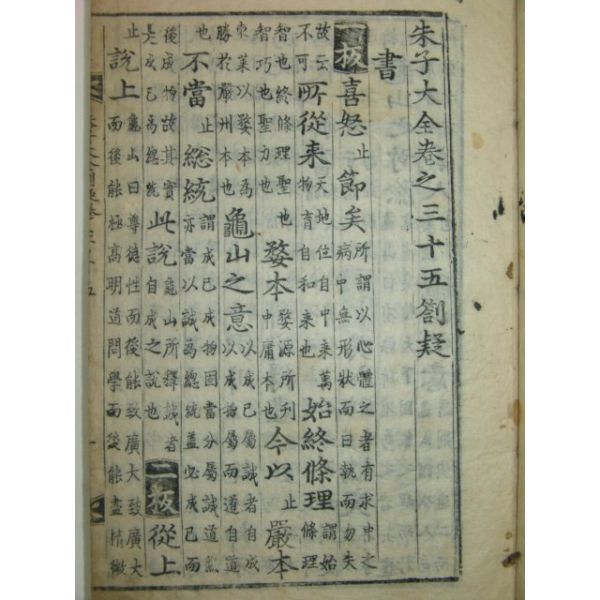 朱子大全卷之三十五劄疑
書
一板喜怒止節矣所謂以心體之者有求中之病中無形狀而曰執而勿失
故云不可所從来天地位自中来萬物育自和来也始終條理謂始條理
智也終條理聖也智巧也聖力也婺本婺源所刊中庸本也今以止嚴本
東萊以婺本爲勝於嚴州本也龜山之意以成已屬誠者自成以成物屬而道自道
也不當止総統謂成已成物固當分屬誠道然亦當以誠爲總統蓋必成已而
後成物故其實是成已爲總統此說龜山所釋誠者自成之說也二板從上
止說上龜山曰尊德性而後能致廣大致廣大而後能極高明道問學而後能盡精微